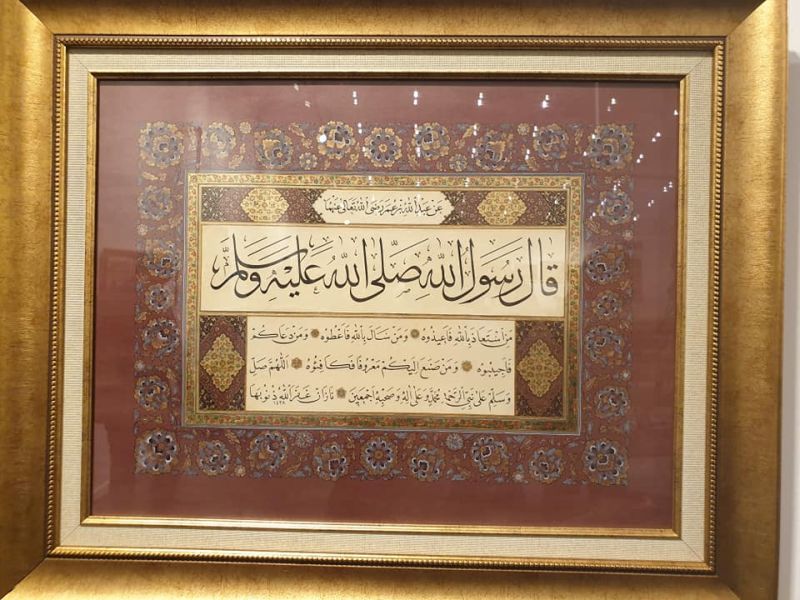 عَنْ عَبْدِ اللهِ بْنِ عُمَرَ رَضِيَ اللهُ تَعَالَى عَنْهُمَا
قَالَ رَسُولُ اللهِ صَلَّى اللهُ عَلَيْهِ وَسَلَّمَ
مَنْ اسْتَعَاذَ بِاللهِ فَاَعِيذُوهُ وَمَنْ سَاَلَ بِاللهِ فَاَعْطُوهُ وَمَنْ دَعَاكُمْ
فَاَجِيبُوهُ وَمَنْ صَنَعَ اِلَيْكُمْ مَعْرُوفًا فَكَافِئُوهُ اَللّٰهُمَّ صَلِّ
وَسَلِّمْ عَلَى نَبِيِّ الرَّحْمَةِ مُحَمَّدٍ وَعَلَى اٰلِهِ وَصَحْبِهِ اَجْمَعِينَ غَفَرَ اللهُ ذُنُوبَهَا
١٤٣٨